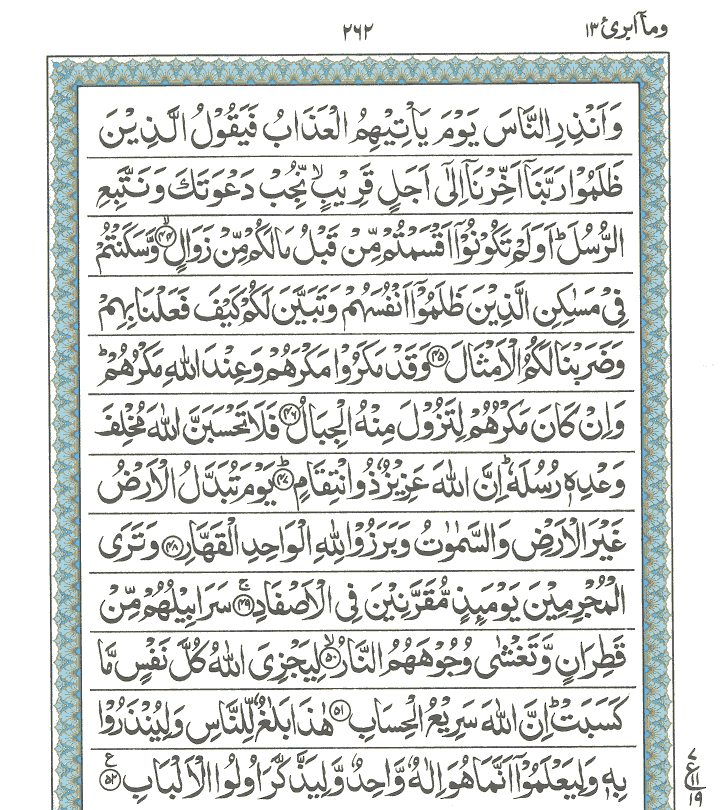 وماۤ ابرئ ١٣
٢٦٢
وَاَنْذِرِ النَّاسَ يَوْمَ يَاْتِيْهِمُ الْعَذَابُ فَيَقُوْلُ الَّذِيْنَ
ظَلَمُوْا رَبَّنَاۤ اَخِّرْنَاۤ اِلٰۤى اَجَلٍ قَرِيْبٍ ۙ نُّجِبْ دَعْوَتَكَ وَنَتَّبِعِ
الرُّسُلَ ؕ اَوَلَمْ تَكُوْنُوْۤا اَقْسَمْتُمْ مِّنْ قَبْلُ مَا لَكُمْ مِّنْ زَوَالٍ ۙ﴿۴۴﴾ وَّسَكَنْتُمْ
فِيْ مَسٰكِنِ الَّذِيْنَ ظَلَمُوْۤا اَنْفُسَهُمْ وَتَبَيَّنَ لَكُمْ كَيْفَ فَعَلْنَا بِهِمْ
وَضَرَبْنَا لَكُمُ الْاَمْثَالَ ﴿۴۵﴾ وَقَدْ مَكَرُوْا مَكْرَهُمْ وَعِنْدَ اللّٰهِ مَكْرُهُمْ ؕ
وَاِنْ كَانَ مَكْرُهُمْ لِتَزُوْلَ مِنْهُ الْجِبَالُ ﴿۴۶﴾ فَلَا تَحْسَبَنَّ اللّٰهَ مُخْلِفَ
وَعْدِهٖ رُسُلَهٗ ؕ اِنَّ اللّٰهَ عَزِيْزٌ ذُو انْتِقَامٍ ؕ﴿۴۷﴾ يَوْمَ تُبَدَّلُ الْاَرْضُ
غَيْرَ الْاَرْضِ وَالسَّمٰوٰتُ وَبَرَزُوْا لِلّٰهِ الْوَاحِدِ الْقَهَّارِ ﴿۴۸﴾ وَتَرَى
الْمُجْرِمِيْنَ يَوْمَئِذٍ مُّقَرَّنِيْنَ فِى الْاَصْفَادِ ۚ﴿۴۹﴾ سَرَابِيْلُهُمْ مِّنْ
قَطِرَانٍ وَّتَغْشٰى وُجُوْهَهُمُ النَّارُ ۙ﴿۵۰﴾ لِيَجْزِيَ اللّٰهُ كُلَّ نَفْسٍ مَّا
كَسَبَتْ ؕ اِنَّ اللّٰهَ سَرِيْعُ الْحِسَابِ ﴿۵۱﴾ هٰذَا بَلٰغٌ لِّلنَّاسِ وَلِيُنْذَرُوْا
بِهٖ وَلِيَعْلَمُوْۤا اَنَّمَا هُوَ اِلٰهٌ وَّاحِدٌ وَّلِيَذَّكَّرَ اُولُوا الْاَلْبَابِ ﴿۵۲﴾ ع
٧
ع
١١
١٩